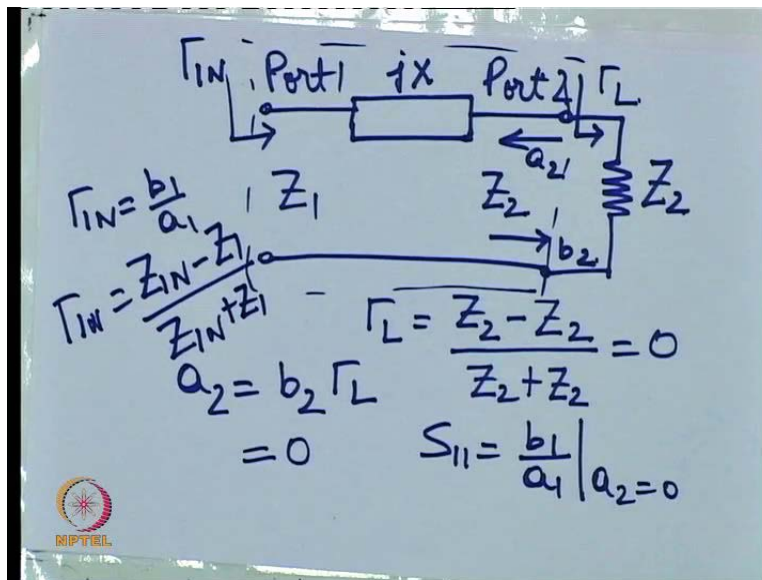 Γ_IN Port1 jX Port2 Γ_L
a_2
Γ_IN = b_1/a_1 Z_1 Z_2 Z_2
b_2
Γ_IN = (Z_IN - Z_1)/(Z_IN + Z_1)
Γ_L = (Z_2 - Z_2)/(Z_2 + Z_2) = 0
a_2 = b_2 Γ_L
= 0 S_11 = b_1/a_1 | a_2=0
NPTEL